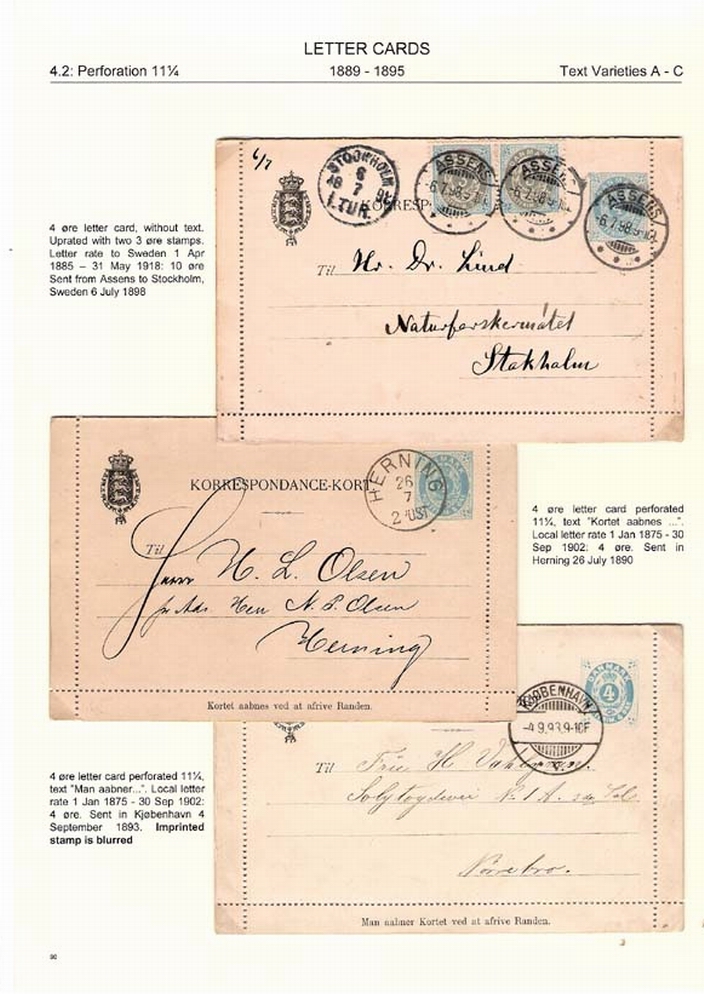 LETTER CARDS
4.2: Perforation 11¼ 1889 - 1895 Text Varieties A - C
4 øre letter card, without text.
Uprated with two 3 øre stamps.
Letter rate to Sweden 1 Apr
1885 – 31 May 1918: 10 øre
Sent from Assens to Stockholm,
Sweden 6 July 1898
6/7
STOCKHOLM
6
7
1.TUR.
ASSENS
-6.7.98.9-
ASSENS
6.7.98.9-
ASSENS
-6.7.98.9-10
KORRESP
Til Hr. Dr. Lind
Naturforskermötet
Stokholm
KORRESPONDANCE-KORT
HERNING
26
7
2 PUST
Til
Herr N. L. Olsen
Herr N. P. Olsen
Herning
Kortet aabnes ved at afrive Randen.
4 øre letter card perforated
11¼, text "Kortet aabnes ...".
Local letter rate 1 Jan 1875 - 30
Sep 1902: 4 øre. Sent in
Herning 26 July 1890
DANMARK
4
KJØBENHAVN
-4.9.93.9-10F
Til
Nörrebro.
Man aabner Kortet ved at afrive Randen.
4 øre letter card perforated 11¼,
text "Man aabner...". Local letter
rate 1 Jan 1875 - 30 Sep 1902:
4 øre. Sent in Kjøbenhavn 4
September 1893. Imprinted
stamp is blurred